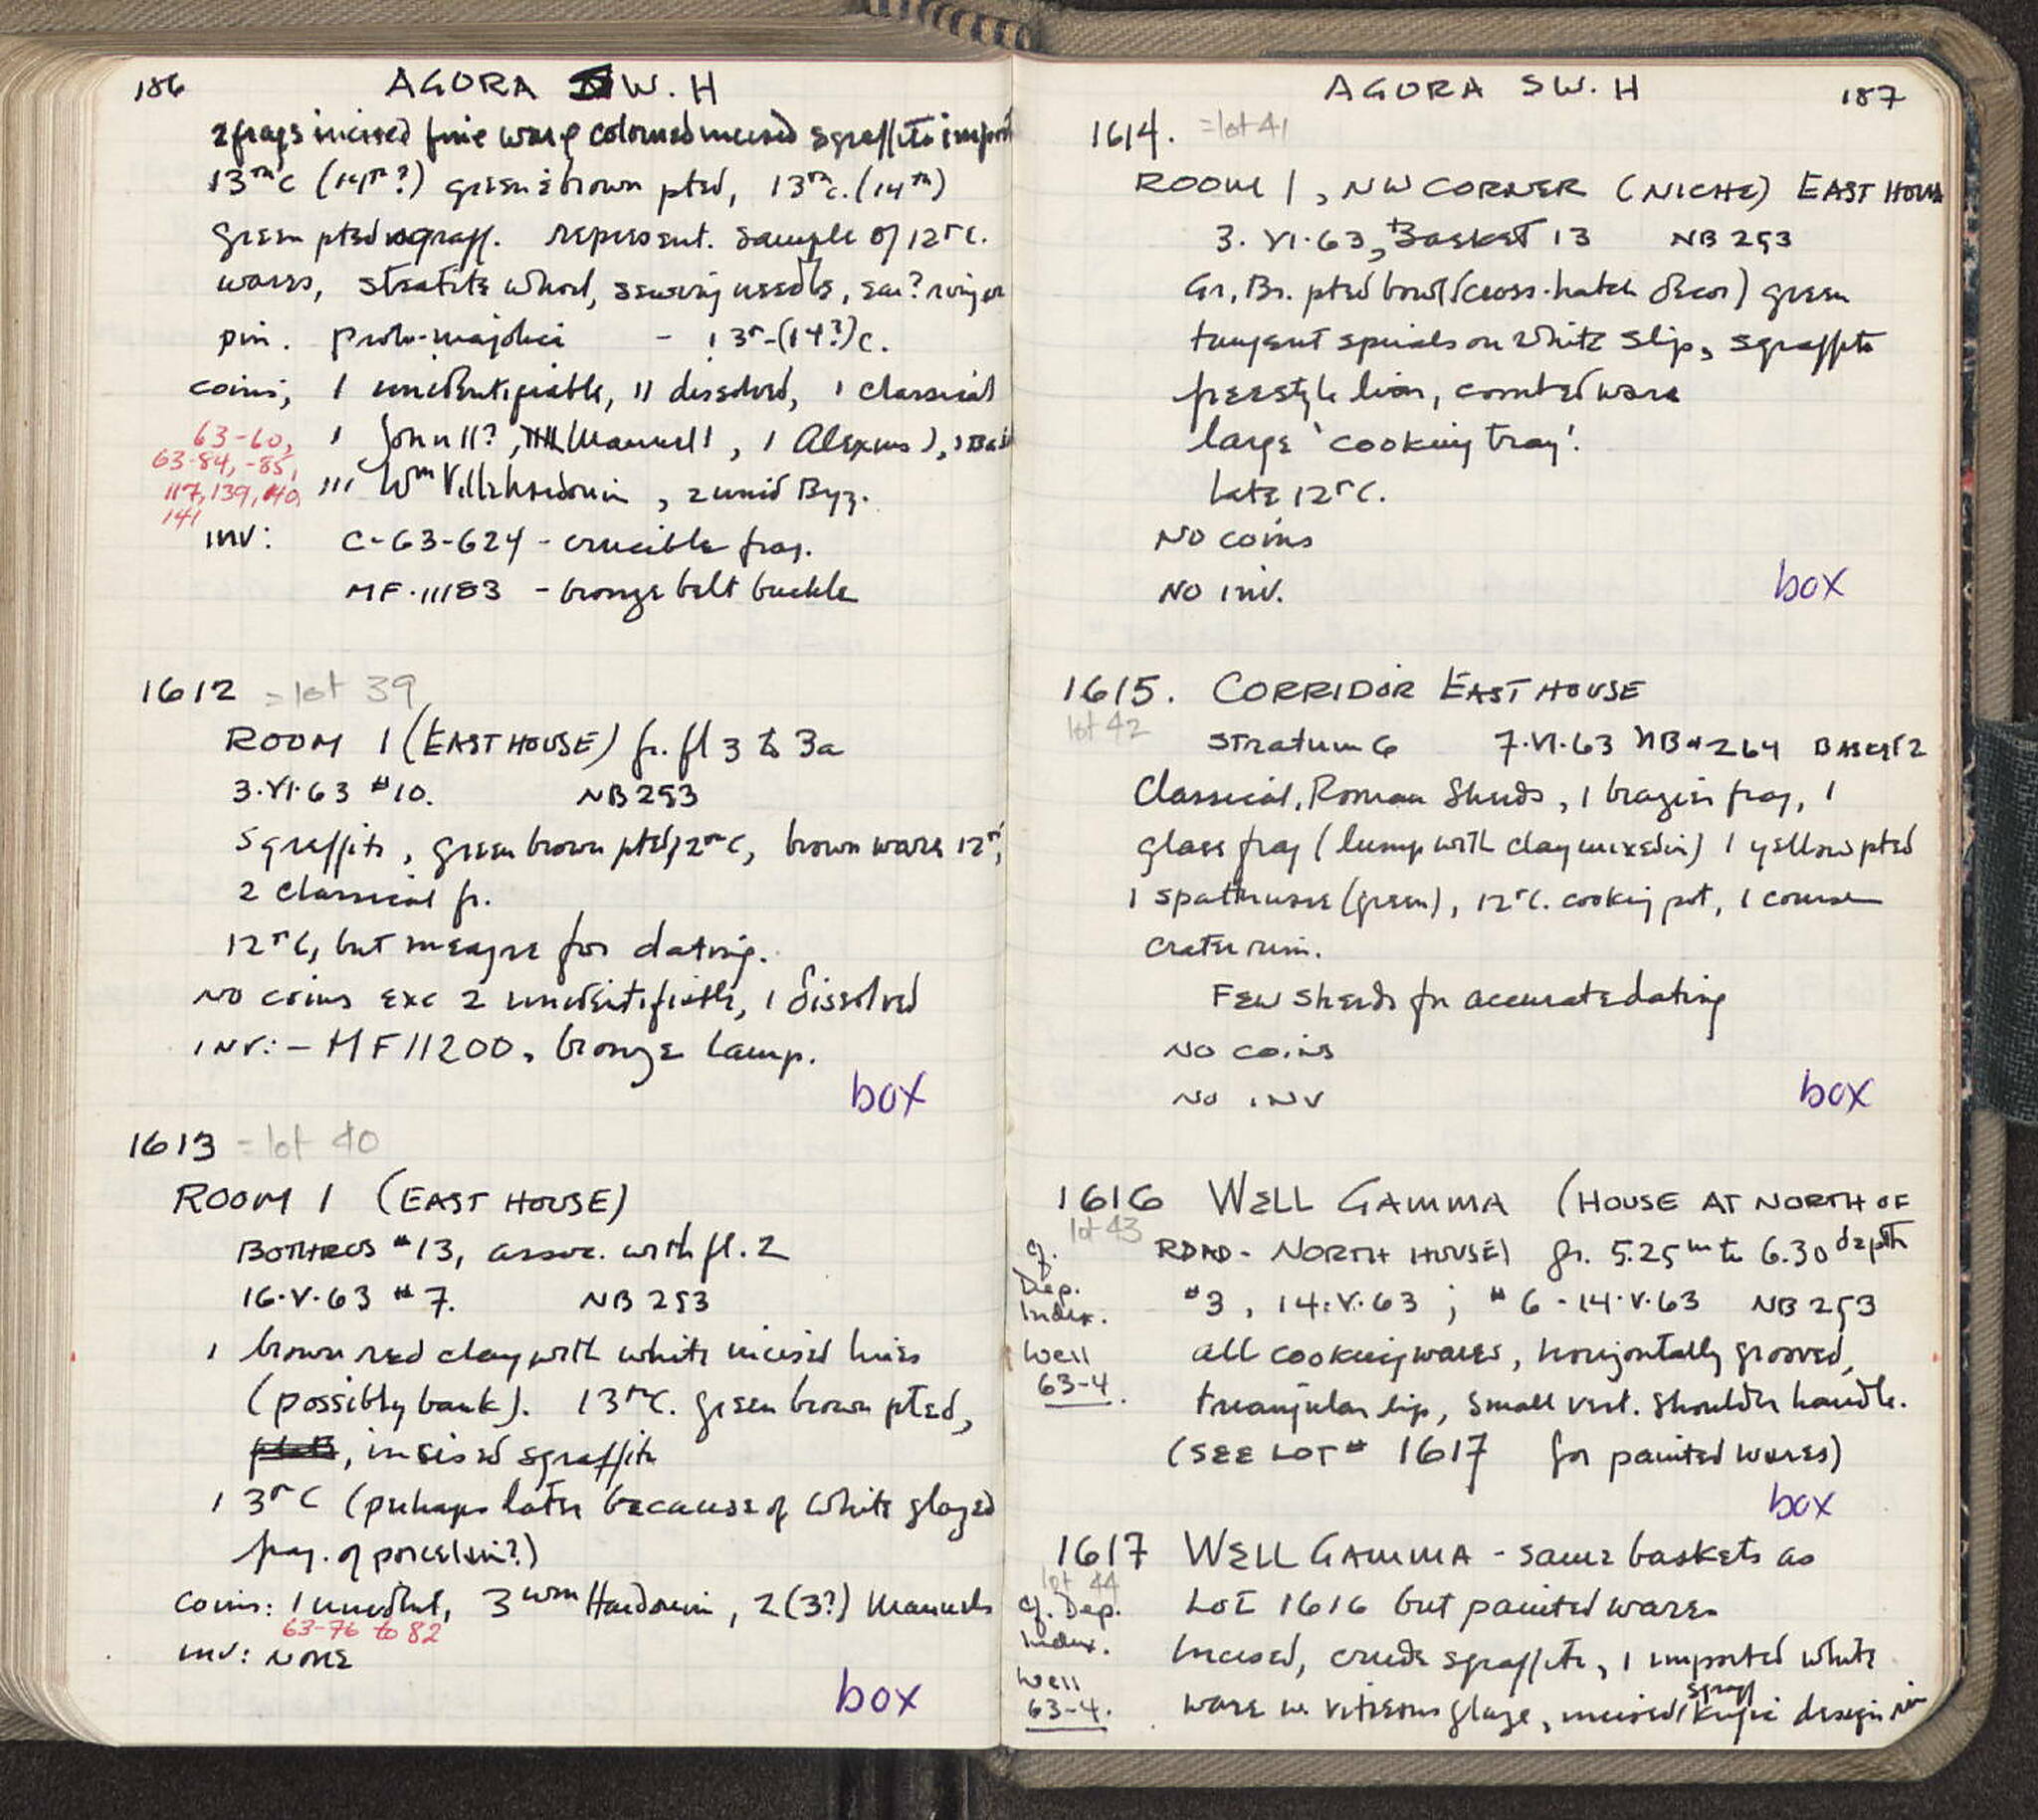 186 AGORA SW. H
2 frags incised fine ware colored incised sgraffito import
13thC (14th?) green & brown pted, 13thc. (14th)
green pted sgraff. represent. sample of 12thC.
wares, steatite whorl, sewing needle, ear? ring or
pin. Proto-majolica - 13th-(14?)c.
coins; 1 unidentifiable, 11 dissolved, 1 Classical
1 John II?, Manuel I, 1 Alexius I,
63-60,
63-84, -85,
117, 139, 140,
141
III Wm Villehardouin, 2 unid Byz.
inv: C-63-624 - crucible frag.
MF.11183 - bronze belt buckle
1612 = lot 39
ROOM 1 (EAST HOUSE) fr. fl 3 to 3a
3.VI.63 #10. NB 253
Sgraffito, green brown pted 12thC, brown ware 12th,
2 Classical fr.
12thC, but meagre for dating.
No coins exc 2 unidentifiable, 1 dissolved
INV: - MF 11200, bronze lamp.
box
1613 = lot 40
ROOM 1 (EAST HOUSE)
BOTHROS #13, assoc. with fl. 2
16.V.63 #7. NB 253
1 brown red clay with white incised lines
(possibly bank). 13thC. green brown pted,
, incised sgraffito
13thC (perhaps later because of white glazed
frag. of porcelain?)
Coins: 1 unident, 3 Wm Hardouin, 2(3?) Manuels
63-76 to 82
inv: NONE
box
AGORA SW. H 187
1614. = lot 41
ROOM 1, NW CORNER (NICHE) EAST HOUSE
3.VI.63, Basket 13 NB 253
Gr. Br. pted bowl (cross-hatch decor) green
tangent spirals on white slip, sgraffito
freestyle lion, combed ware
large 'cooking tray'.
Late 12thC.
No coins
No inv.
box
1615. CORRIDOR EAST HOUSE
lot 42
Stratum 6 7.VI.63 NB #264 BASKET 2
Classical, Roman Sherds, 1 brazier frag, 1
glass frag (lump with clay mixed in) 1 yellow pted
1 spatterware (green), 12thC. cooking pot, 1 coarse
crater rim.
Few sherds for accurate dating
No coins
No INV
box
1616 WELL GAMMA (HOUSE AT NORTH OF
lot 43
ROAD - NORTH HOUSE) fr. 5.25m to 6.30 depth
cf.
Dep.
Index.
Well
63-4.
#3, 14.V.63; #6-14.V.63 NB 253
all cooking wares, horizontally grooved,
triangular lip, small vert. shoulder handle.
(SEE LOT # 1617 for painted wares)
box
1617 WELL GAMMA - same baskets as
lot 44
LOT 1616 but painted wares
cf. Dep.
Index.
Well
63-4.
Incised, crude sgraffito, 1 imported white
ware w. vitreous glaze, incised/sgraff Kufic design in